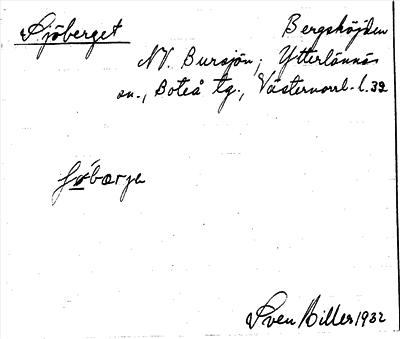 Sjöberget Bergshöjden
NV. Bursjön, Ytterlännäs
sn., Boteå tg., Västernorrl. l. 32
Sven Hiller 1932